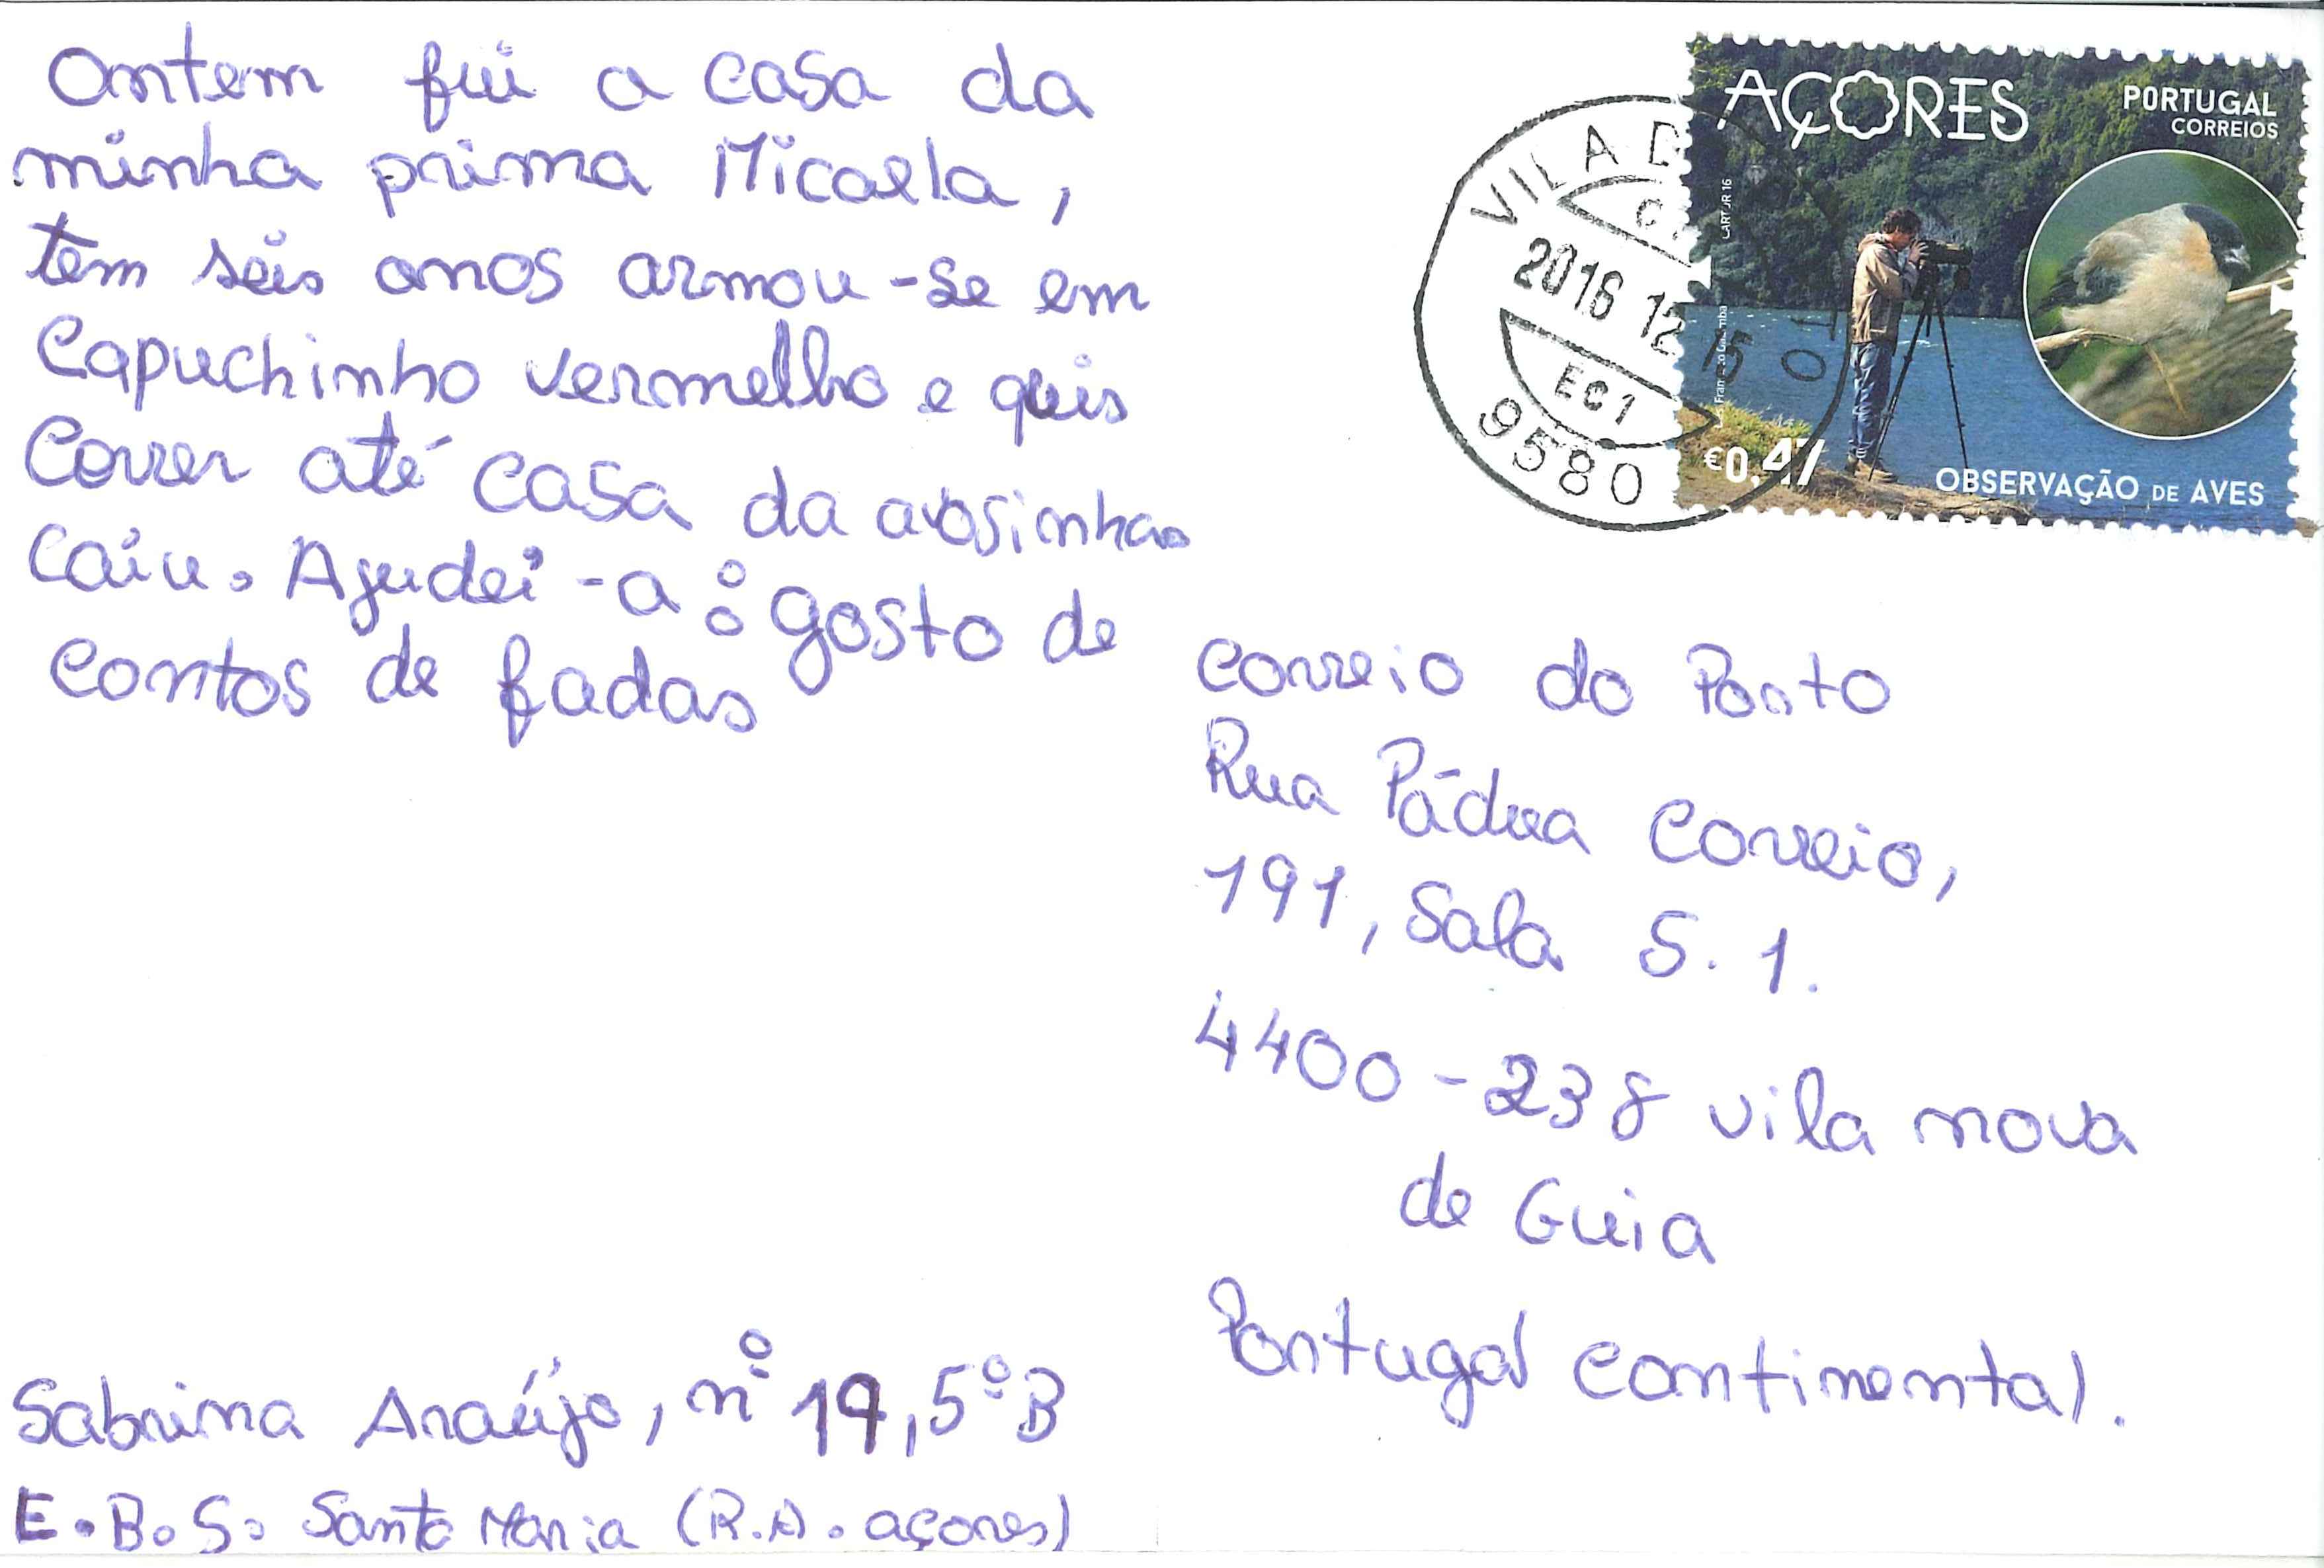 Ontem fui a casa da
minha prima Micaela,
tem seis anos armou-se em
Capuchinho vermelho e quis
Correr até casa da avosinha.
Caiu. Ajudei-a: gosto de
contos de fadas
Sabrina Araújo, nº 19, 5ºB
E.B.S. Santa Maria (R.A. açores)
AÇORES
PORTUGAL
CORREIOS
€0,47
OBSERVAÇÃO DE AVES
VILA D
2016 12 15
EC1
9580
Correio do Porto
Rua Pádua Correio,
191, Sala S.1.
4400-238 vila nova
de Guia
Portugal continental.